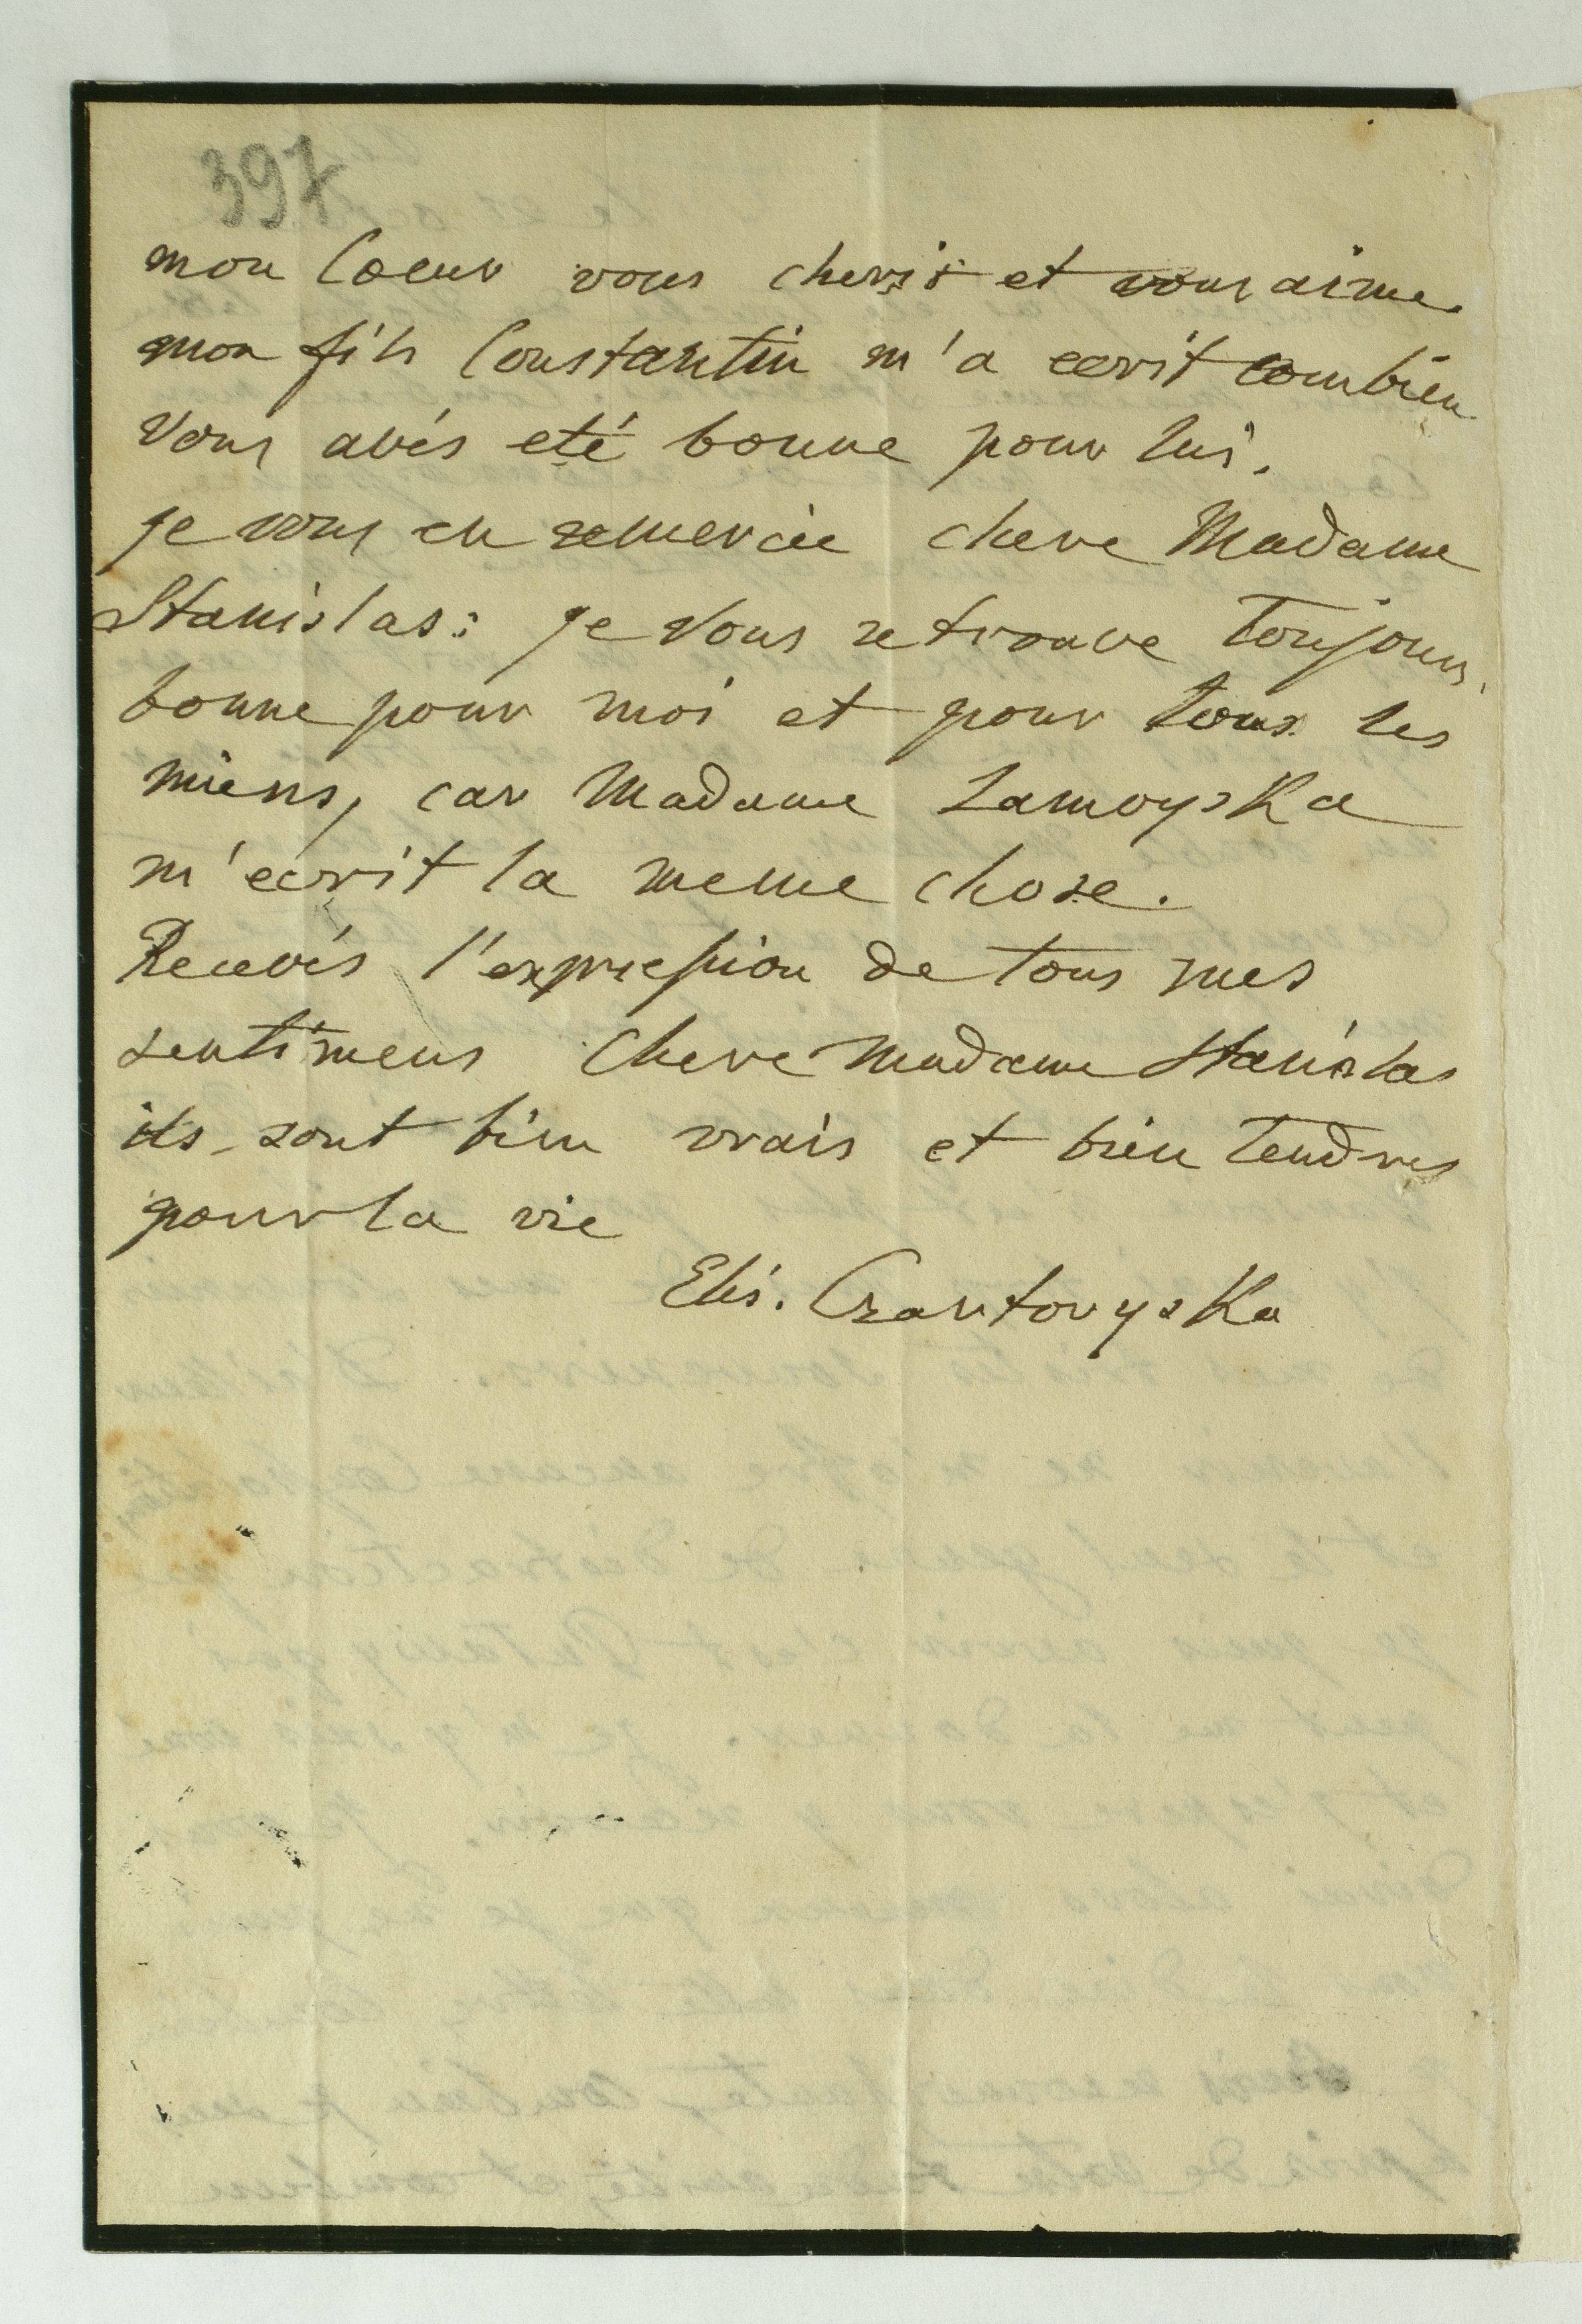 397
mon Coeur vous cheris et vous aime.
mon fils Constantin m'a ecrit combien
Vous avés eté bonne pour lui.
je vous en remercie chere Madame
Stanislas: je Vous retrouve Toujours,
bonne pour moi et pour tous les
miens, car Madame Zamoyska
m'ecrit la meme chose.
Recevés l'expression de tous mes
sentimens chere Madame Stanislas
ils sont bien vrais et bien Tendres
pour la vie
Elis. Czartoryska